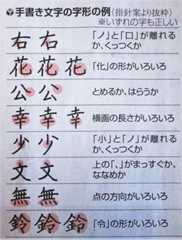 手書き文字の字形の例(指針案より抜粋)
※いずれの字も正しい
右 右 「ノ」と「口」が離れるか、くっつくか
花 花 花 「化」の形がいろいろ
公 公 とめるか、はらうか
幸 幸 幸 横画の長さがいろいろ
少 少 「小」と「ノ」が離れるか、くっつくか
文 文 上の「、」がまっすぐか、ななめか
無 無 点の方向がいろいろ
鈴 鈴 鈴 「令」の形がいろいろ